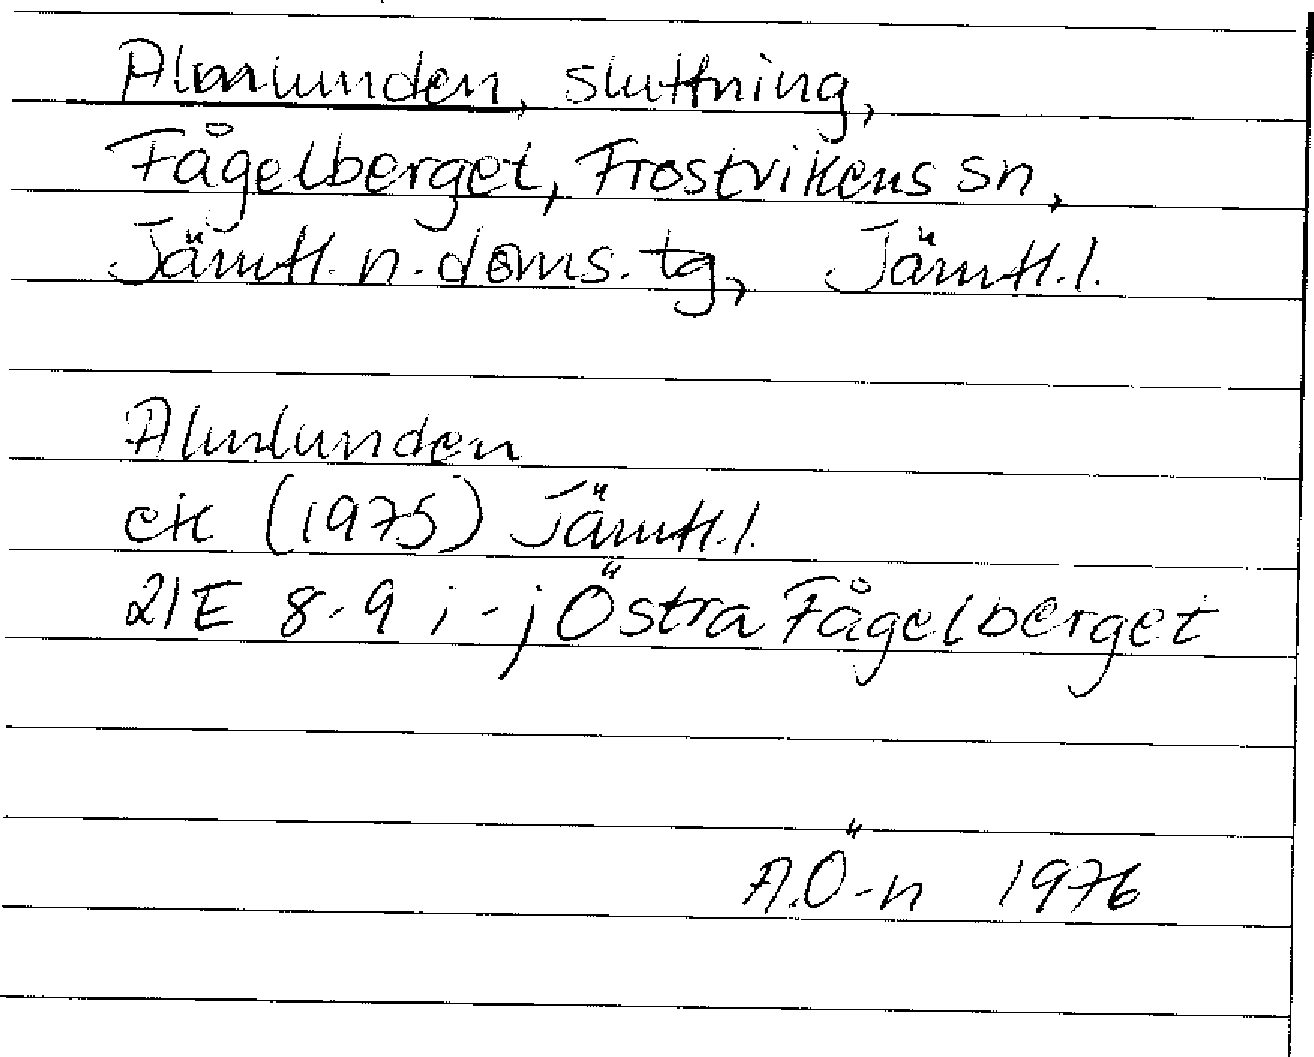 Almlunden, sluttning,
Fågelberget, Frostvikens sn,
Jämtl. n. doms. tg, Jämtl. l.
Almlunden
ek (1975) Jämtl. l.
21E 8-9 i-j Östra Fågelberget
A.Ö-n 1976